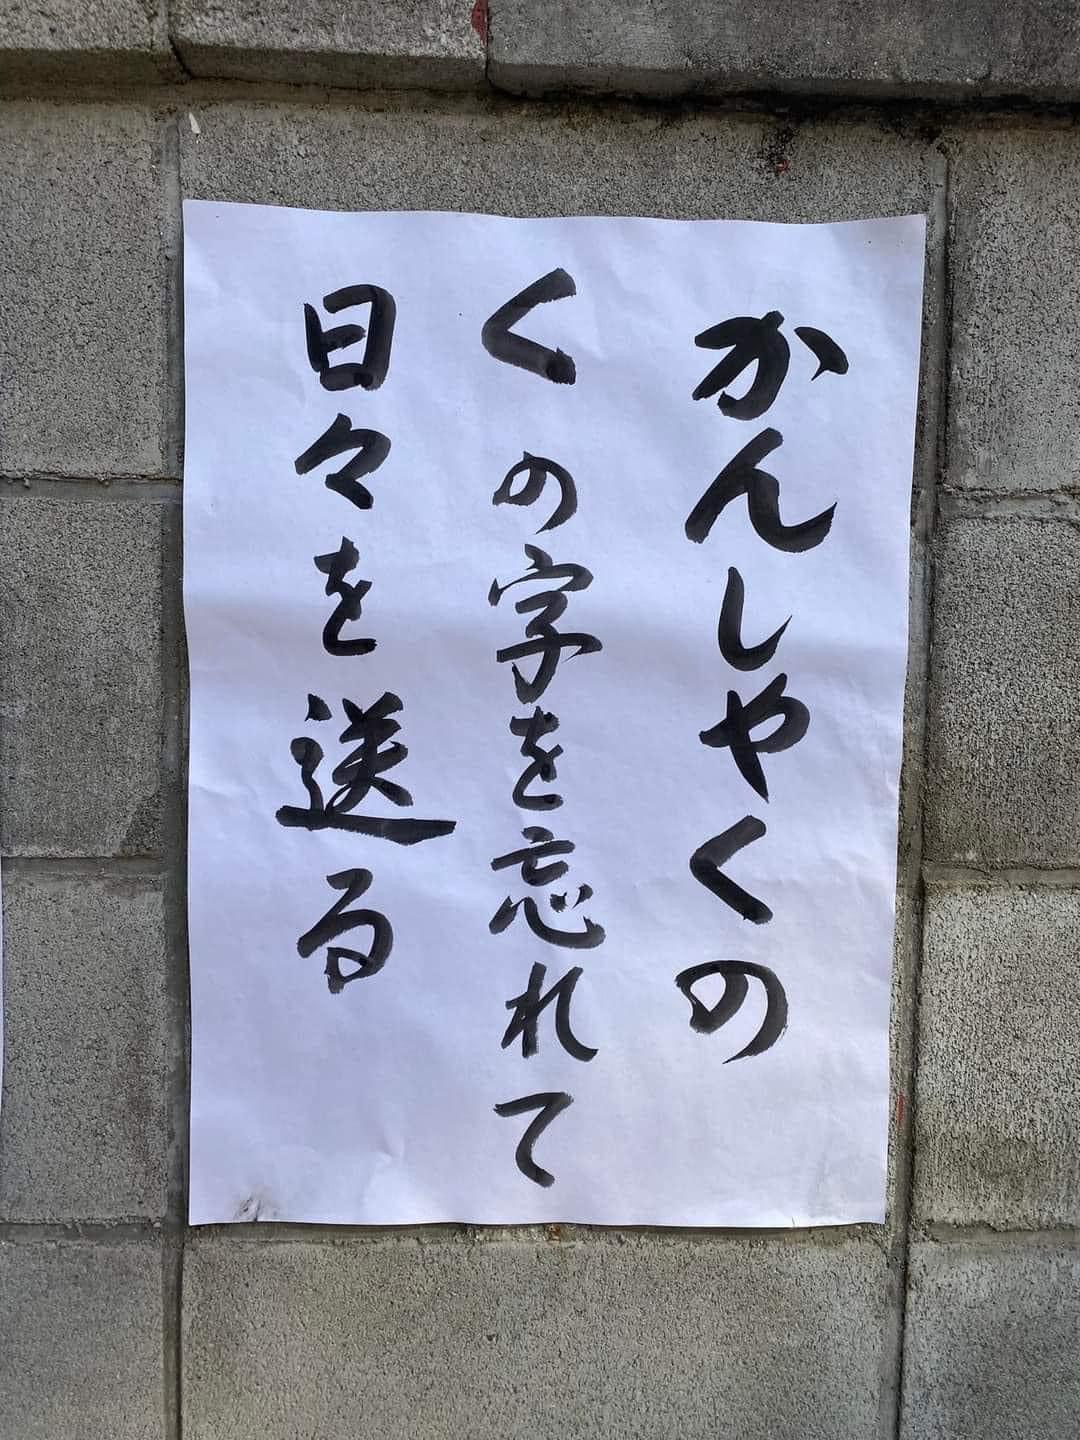 かんしやくの
くの字を忘れて
日々を送る